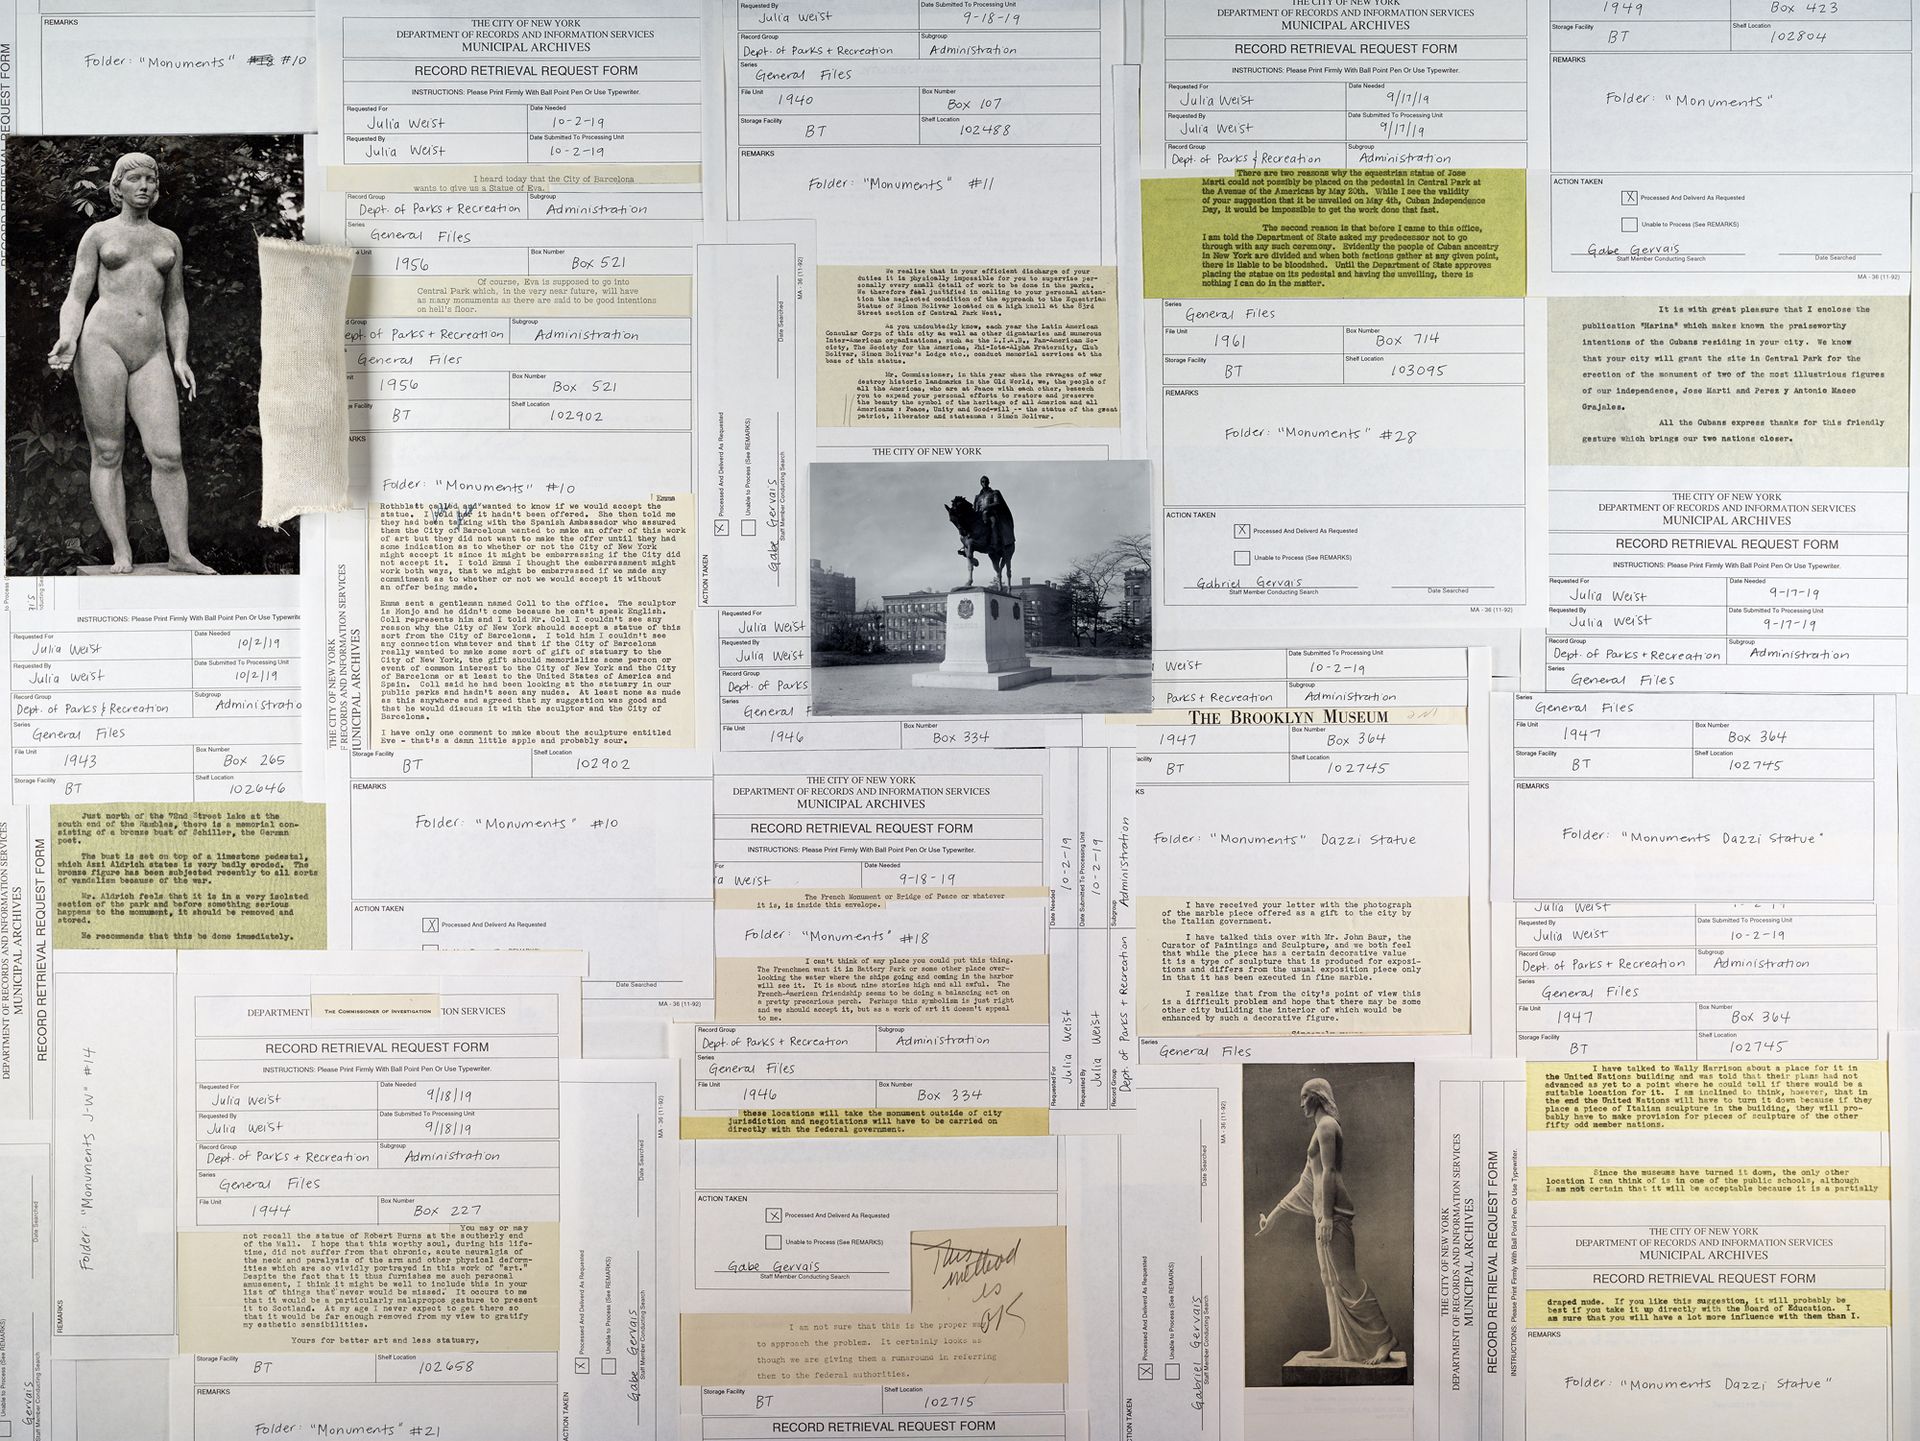 REMARKS
Folder: "Monuments" #10
RECORD RETRIEVAL REQUEST FORM
THE CITY OF NEW YORK
DEPARTMENT OF RECORDS AND INFORMATION SERVICES
MUNICIPAL ARCHIVES
RECORD RETRIEVAL REQUEST FORM
INSTRUCTIONS: Please Print Firmly With Ball Point Pen Or Use Typewriter.
Requested For
Julia Weist
Date Needed
10-2-19
Requested By
Julia Weist
Date Submitted To Processing Unit
10-2-19
I heard today that the City of Barcelona
wants to give us a Statue of Eva.
Record Group
Dept. of Parks + Recreation
Subgroup
Administration
Series
General Files
1956
Box Number
Box 521
Of course, Eva is supposed to go into
Central Park which, in the very near future, will have
as many monuments as there are said to be good intentions
on hell's floor.
Dept. of Parks + Recreation
Subgroup
Administration
General Files
1956
Box Number
Box 521
BT
Shelf Location
102902
Folder: "Monuments" #10
Emma
Rothblatt called and wanted to know if we would accept the
statue. I told her it hadn't been offered. She then told me
they had been talking with the Spanish Ambassador who assured
them the City of Barcelona wanted to make an offer of this work
of art but they did not want to make the offer until they had
some indication as to whether or not the City of New York
might accept it since it might be embarrassing if the City did
not accept it. I told Emma I thought the embarrassment might
work both ways, that we might be embarrassed if we made any
commitment as to whether or not we would accept it without
an offer being made.
Emma sent a gentleman named Coll to the office. The sculptor
is Monjo and he didn't come because he can't speak English.
Coll represents him and I told Mr. Coll I couldn't see any
reason why the City of New York should accept a statue of this
sort from the City of Barcelona. I told him I couldn't see
any connection whatever and that if the City of Barcelona
really wanted to make some sort of gift of statuary to the
City of New York, the gift should memorialize some person or
event of common interest to the City of New York and the City
of Barcelona or at least to the United States of America and
Spain. Coll said he had been looking at the statuary in our
public parks and hadn't seen any nudes. At least none as nude
as this anywhere and agreed that my suggestion was good and
that he would discuss it with the sculptor and the City of
Barcelona.
I have only one comment to make about the sculpture entitled
Eve - that's a damn little apple and probably sour.
Storage Facility
BT
Shelf Location
102902
REMARKS
Folder: "Monuments" #10
ACTION TAKEN
X Processed And Deliverd As Requested
Date Searched
MA - 36 (11-92)
INSTRUCTIONS: Please Print Firmly With Ball Point Pen Or Use Typewriter.
Requested For
Julia Weist
Date Needed
10/2/19
Requested By
Julia Weist
Date Submitted To Processing Unit
10/2/19
Record Group
Dept. of Parks & Recreation
Subgroup
Administratio
Series
General Files
File Unit
1943
Box Number
Box 265
Storage Facility
BT
Shelf Location
102646
Just north of the 72nd Street lake at the
south end of the Rambles, there is a memorial con-
sisting of a bronze bust of Schiller, the German
poet.
The bust is set on top of a limestone pedestal,
which Azzi Aldrich states is very badly eroded. The
bronze figure has been subjected recently to all sorts
of vandalism because of the war.
Mr. Aldrich feels that it is in a very isolated
section of the park and before something serious
happens to the monument, it should be removed and
stored.
He recommends that this be done immediately.
DEPARTMENT OF RECORDS AND INFORMATION SERVICES
MUNICIPAL ARCHIVES
RECORD RETRIEVAL REQUEST FORM
Folder: "Monuments J-W" #14
REMARKS
DEPARTMENT
THE COMMISSIONER OF INVESTIGATION
TION SERVICES
RECORD RETRIEVAL REQUEST FORM
INSTRUCTIONS: Please Print Firmly With Ball Point Pen Or Use Typewriter.
Requested For
Julia Weist
Date Needed
9/18/19
Requested By
Julia Weist
Date Submitted To Processing Unit
9/18/19
Record Group
Dept. of Parks + Recreation
Subgroup
Administration
Series
General Files
File Unit
1944
Box Number
Box 227
You may or may
not recall the statue of Robert Burns at the southerly end
of the Mall. I hope that this worthy soul, during his life-
time, did not suffer from that chronic, acute neuralgia of
the neck and paralysis of the arm and other physical deform-
ities which are so vividly portrayed in this work of "art."
Despite the fact that it thus furnishes me such personal
amusement, I think it might be well to include this in your
list of things that never would be missed. It occurs to me
that it would be a particularly malapropos gesture to present
it to Scotland. At my age I never expect to get there so
that it would be far enough removed from my view to gratify
my esthetic sensibilities.
Yours for better art and less statuary,
Storage Facility
BT
Shelf Location
102658
REMARKS
Folder: "Monuments" #21
Requested By
Julia Weist
Date Submitted To Processing Unit
9-18-19
Record Group
Dept. of Parks + Recreation
Subgroup
Administration
Series
General Files
File Unit
1940
Box Number
Box 107
Storage Facility
BT
Shelf Location
102488
REMARKS
Folder: "Monuments" #11
We realize that in your efficient discharge of your
duties it is physically impossible for you to supervise per-
sonally every small detail of work to be done in the parks.
We therefore feel justified in calling to your personal atten-
tion the neglected condition of the approach to the Equestrian
Statue of Simon Bolivar located on a high knoll at the 83rd
Street section of Central Park West.
As you undoubtedly know, each year the Latin American
Consular Corps of this city as well as other dignitaries and numerous
Inter-American organizations, such as the L.I.A.B., Pan-American So-
ciety, The Society for the Americas, Phi-Iota-Alpha Fraternity, Club
Bolivar, Simon Bolivar's Lodge etc., conduct memorial services at the
base of this statue.
Mr. Commissioner, in this year when the ravages of war
destroy historic landmarks in the Old World, we, the people of
all the Americas, who are at Peace with each other, beseech
you to expend your personal efforts to restore and preserve
the beauty the symbol of the heritage of all America and all
Americans : Peace, Unity and Good-will -- the statue of the great
patriot, liberator and statesman : Simon Bolivar.
THE CITY OF NEW YORK
MA - 36 (11-92)
Date Searched
X Processed And Deliverd As Requested
Unable to Process (See REMARKS)
Gabe Gervais
Staff Member Conducting Search
ACTION TAKEN
Requested For
Julia Weist
Julia Weist
Dept. of Parks
General F
1946
Box Number
Box 334
THE CITY OF NEW YORK
DEPARTMENT OF RECORDS AND INFORMATION SERVICES
MUNICIPAL ARCHIVES
RECORD RETRIEVAL REQUEST FORM
INSTRUCTIONS: Please Print Firmly With Ball Point Pen Or Use Typewriter.
Weist
Date Needed
9-18-19
The French Monument or Bridge of Peace or whatever
it is, is inside this envelope.
Folder: "Monuments" #18
I can't think of any place you could put this thing.
The Frenchmen want it in Battery Park or some other place over-
looking the water where the ships going and coming in the harbor
will see it. It is about nine stories high and all awful. The
French-American friendship seems to be doing a balancing act on
a pretty precarious perch. Perhaps this symbolism is just right
and we should accept it, but as a work of art it doesn't appeal
to me.
Record Group
Dept. of Parks + Recreation
Subgroup
Administration
Series
General Files
File Unit
1946
Box Number
Box 334
these locations will take the monument outside of city
jurisdiction and negotiations will have to be carried on
directly with the federal government.
ACTION TAKEN
X Processed And Deliverd As Requested
Unable to Process (See REMARKS)
Gabe Gervais
Staff Member Conducting Search
This
method
is
OK
I am not sure that this is the proper wa
to approach the problem. It certainly looks as
though we are giving them a runaround in referring
them to the federal authorities.
Storage Facility
BT
Shelf Location
102715
RECORD RETRIEVAL REQUEST FORM
THE CITY OF NEW YORK
DEPARTMENT OF RECORDS AND INFORMATION SERVICES
MUNICIPAL ARCHIVES
RECORD RETRIEVAL REQUEST FORM
INSTRUCTIONS: Please Print Firmly With Ball Point Pen Or Use Typewriter.
Requested For
Julia Weist
Date Needed
9/17/19
Requested By
Julia Weist
Date Submitted To Processing Unit
9/17/19
Record Group
Dept. of Parks & Recreation
Subgroup
Administration
There are two reasons why the equestrian statue of Jose
Marti could not possibly be placed on the pedestal in Central Park at
the Avenue of the Americas by May 20th. While I see the validity
of your suggestion that it be unveiled on May 4th, Cuban Independence
Day, it would be impossible to get the work done that fast.
The second reason is that before I came to this office,
I am told the Department of State asked my predecessor not to go
through with any such ceremony. Evidently the people of Cuban ancestry
in New York are divided and when both factions gather at any given point,
there is liable to be bloodshed. Until the Department of State approves
placing the statue on its pedestal and having the unveiling, there is
nothing I can do in the matter.
Series
General Files
File Unit
1961
Box Number
Box 714
Storage Facility
BT
Shelf Location
103095
REMARKS
Folder: "Monuments" #28
ACTION TAKEN
X Processed And Deliverd As Requested
Unable to Process (See REMARKS)
Gabriel Gervais
Staff Member Conducting Search
Date Searched
MA - 36 (11-92)
Weist
Date Submitted To Processing Unit
10-2-19
Parks + Recreation
Subgroup
Administration
THE BROOKLYN MUSEUM
1947
Box Number
Box 364
BT
Shelf Location
102745
Folder: "Monuments" Dazzi Statue
I have received your letter with the photograph
of the marble piece offered as a gift to the city by
the Italian government.
I have talked this over with Mr. John Baur, the
Curator of Paintings and Sculpture, and we both feel
that while the piece has a certain decorative value
it is a type of sculpture that is produced for exposi-
tions and differs from the usual exposition piece only
in that it has been executed in fine marble.
I realize that from the city's point of view this
is a difficult problem and hope that there may be some
other city building the interior of which would be
enhanced by such a decorative figure.
Series
General Files
Date Needed
10-2-19
Date Submitted To Processing Unit
10-2-19
Subgroup
Administration
Requested For
Julia Weist
Requested By
Julia Weist
Record Group
Dept. of Parks + Recreation
1949
Box 423
Storage Facility
BT
Shelf Location
102804
REMARKS
Folder: "Monuments"
ACTION TAKEN
X Processed And Deliverd As Requested
Unable to Process (See REMARKS)
Gabe Gervais
Staff Member Conducting Search
Date Searched
MA - 36 (11-92)
It is with great pleasure that I enclose the
publication "Marina" which makes known the praiseworthy
intentions of the Cubans residing in your city. We know
that your city will grant the site in Central Park for the
erection of the monument of two of the most illustrious figures
of our independence, Jose Marti and Perez y Antonio Maceo
Grajales.
All the Cubans express thanks for this friendly
gesture which brings our two nations closer.
THE CITY OF NEW YORK
DEPARTMENT OF RECORDS AND INFORMATION SERVICES
MUNICIPAL ARCHIVES
RECORD RETRIEVAL REQUEST FORM
INSTRUCTIONS: Please Print Firmly With Ball Point Pen Or Use Typewriter.
Requested For
Julia Weist
Date Needed
9-17-19
Requested By
Julia Weist
Date Submitted To Processing Unit
9-17-19
Record Group
Dept. of Parks + Recreation
Subgroup
Administration
Series
General Files
Series
General Files
File Unit
1947
Box Number
Box 364
Storage Facility
BT
Shelf Location
102745
REMARKS
Folder: "Monuments Dazzi Statue"
Julia Weist
10-2-19
Record Group
Dept. of Parks + Recreation
Subgroup
Administration
Series
General Files
File Unit
1947
Box Number
Box 364
Storage Facility
BT
Shelf Location
102745
I have talked to Wally Harrison about a place for it in
the United Nations building and was told that their plans had not
advanced as yet to a point where he could tell if there would be a
suitable location for it. I am inclined to think, however, that in
the end the United Nations will have to turn it down because if they
place a piece of Italian sculpture in the building, they will pro-
bably have to make provision for pieces of sculpture of the other
fifty odd member nations.
Since the museums have turned it down, the only other
location I can think of is in one of the public schools, although
I am not certain that it will be acceptable because it is a partially
THE CITY OF NEW YORK
DEPARTMENT OF RECORDS AND INFORMATION SERVICES
MUNICIPAL ARCHIVES
RECORD RETRIEVAL REQUEST FORM
draped nude. If you like this suggestion, it will probably be
best if you take it up directly with the Board of Education. I
am sure that you will have a lot more influence with them than I.
REMARKS
Folder: "Monuments Dazzi Statue"